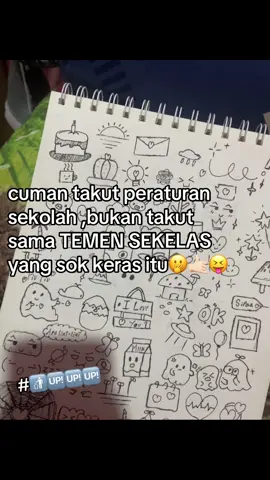 cuman takut peraturan
sekolah ,bukan takut
sama TEMEN SEKELAS
yang sok keras itu🤫🫵🏻😝
I Love
You
OK
MILK
#🚮🆙🆙🆙